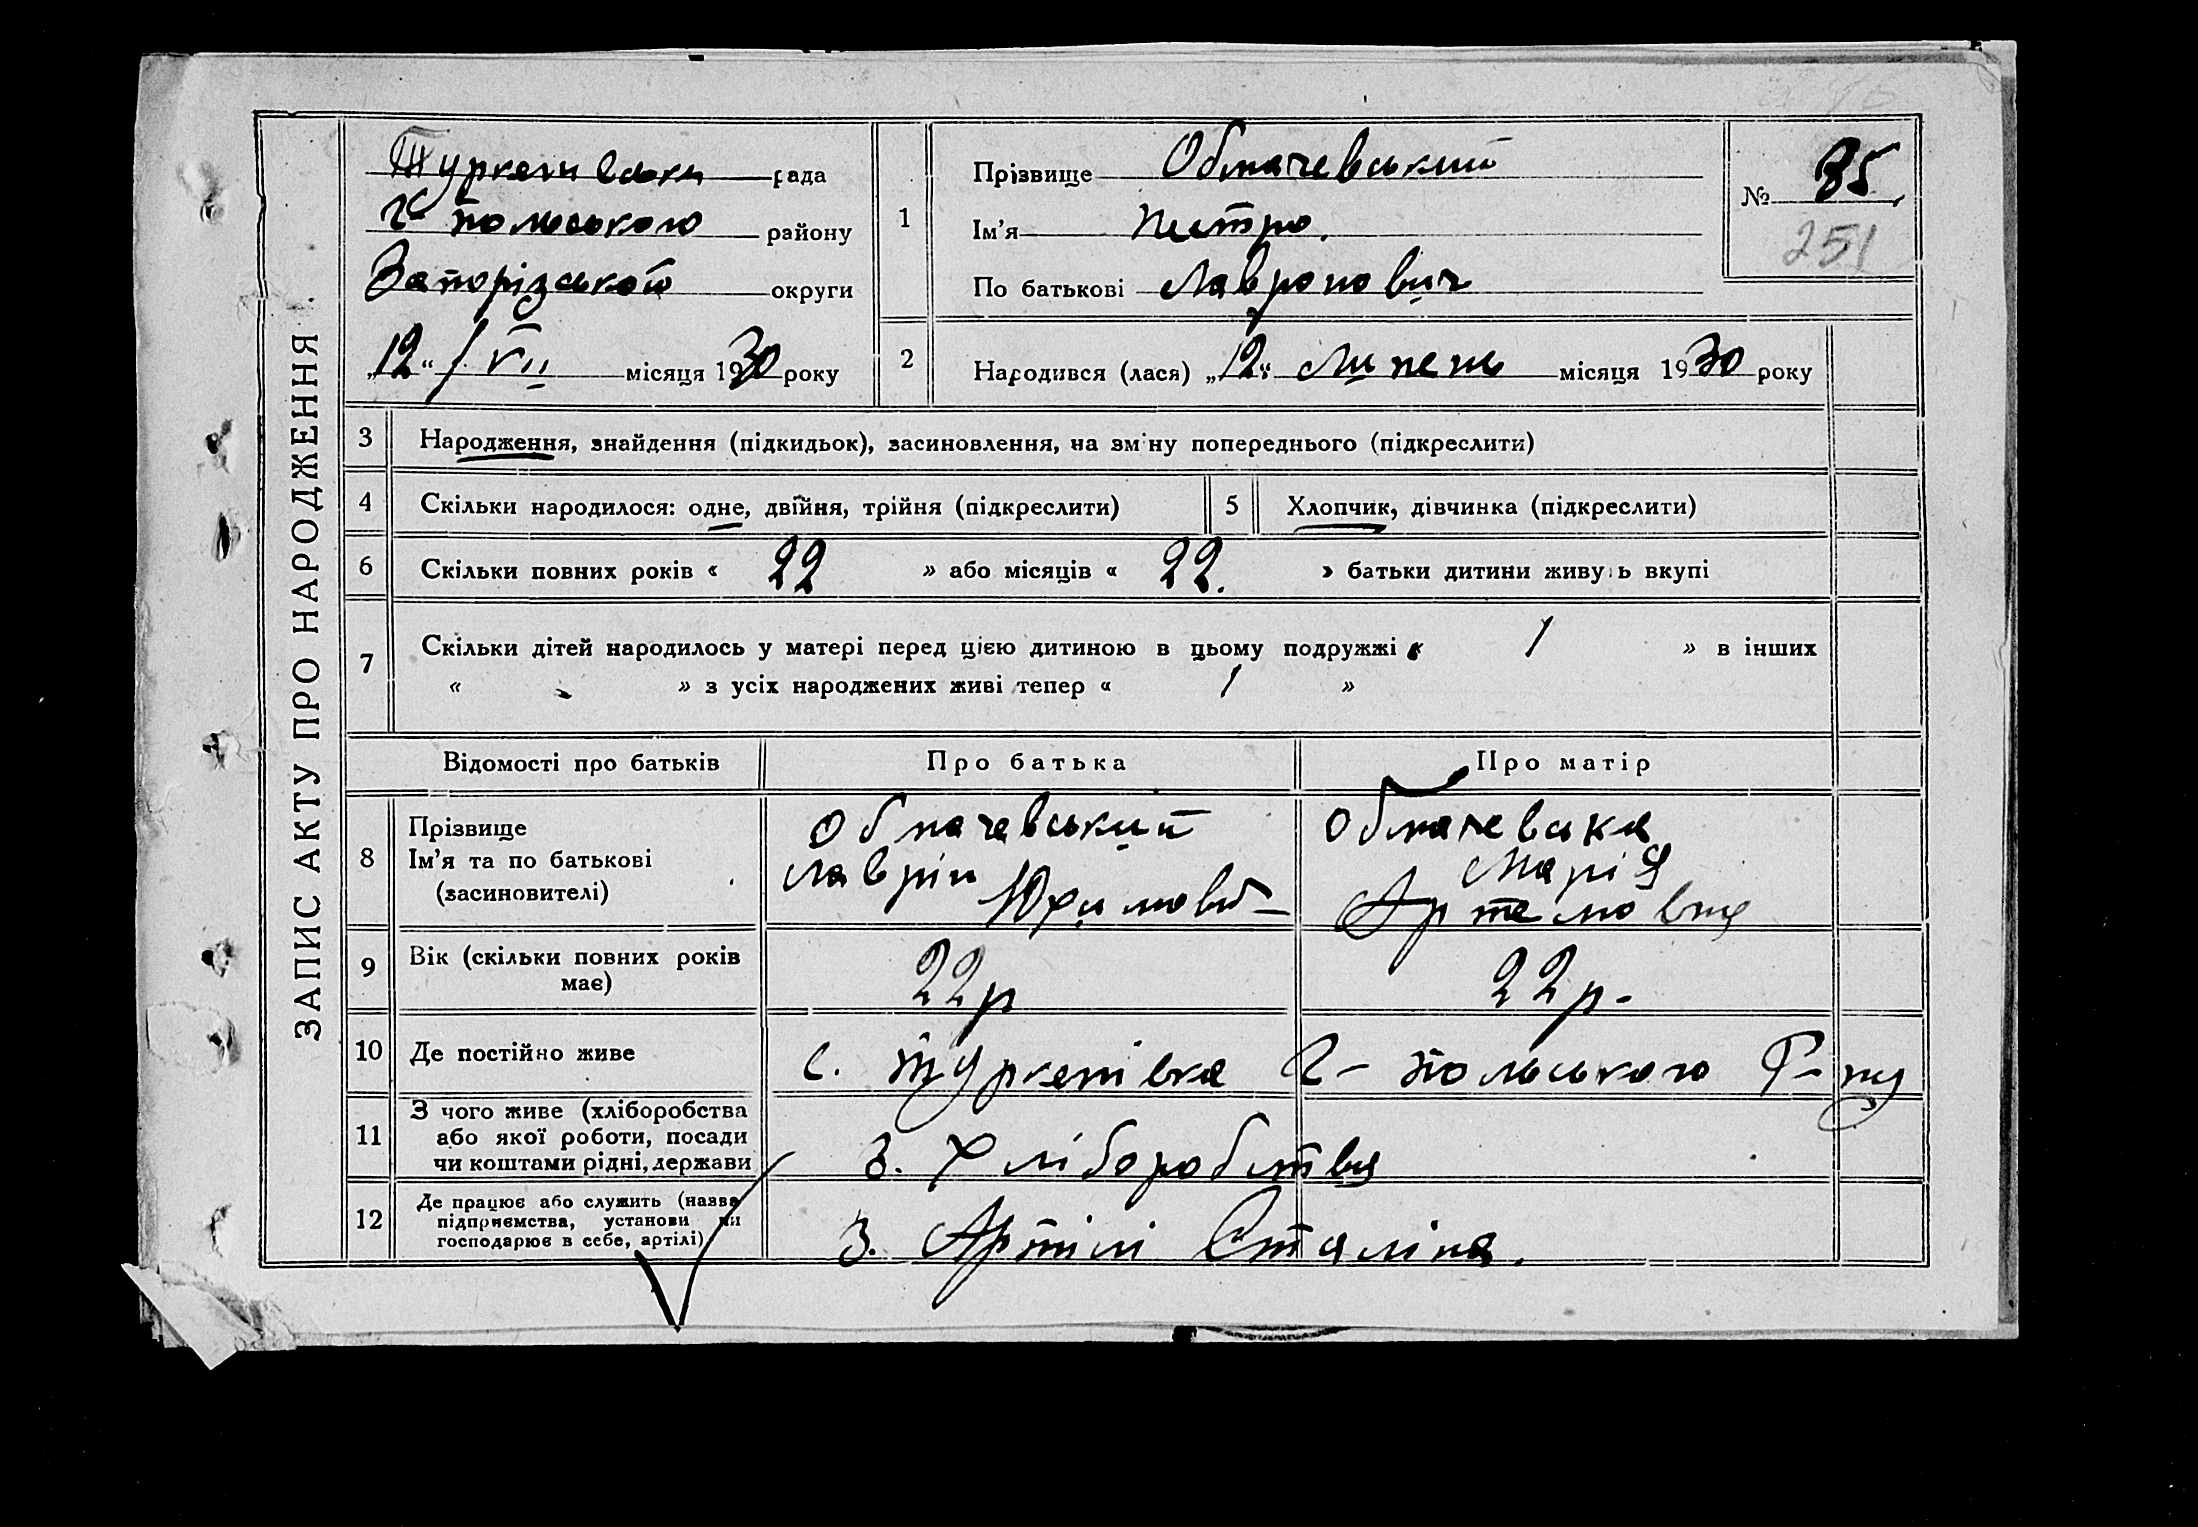 ЗАПИС АКТУ ПРО НАРОДЖЕННЯ
Туркенівська рада
Г-Польського району
Запорізької округи
„12“ / VII місяця 1930 року
1
Прізвище Обмачевський
Ім'я Петро.
По батькові Лавронович
№ 85
251
2
Народився (лася) „12“ Липень місяця 1930 року
3 Народження, знайдення (підкидьок), засиновлення, на зміну попереднього (підкреслити)
4 Скільки народилося: одне, двійня, трійня (підкреслити) 5 Хлопчик, дівчинка (підкреслити)
6 Скільки повних років « 22 » або місяців « 22. » батьки дитини живуть вкупі
7 Скільки дітей народилось у матері перед цією дитиною в цьому подружжі « 1 » в інших
« - » з усіх народжених живі тепер « 1 »
Відомості про батьків Про батька Про матір
8 Прізвище
Ім'я та по батькові
(засиновителі)
Обмачевський
Лаврін
Юхимов
Обмачевська
Марія
Артемовна
9 Вік (скільки повних років
має)
22р 22р.
10 Де постійно живе с. Туркенівка Г-Польського Р-ну
11 З чого живе (хліборобства
або якої роботи, посади
чи коштами рідні, держави
З. Хліборобства
12 Де працює або служить (назва
підприємства, установи чи
господарює в себе, артілі)
З. Артілі Сталіна.